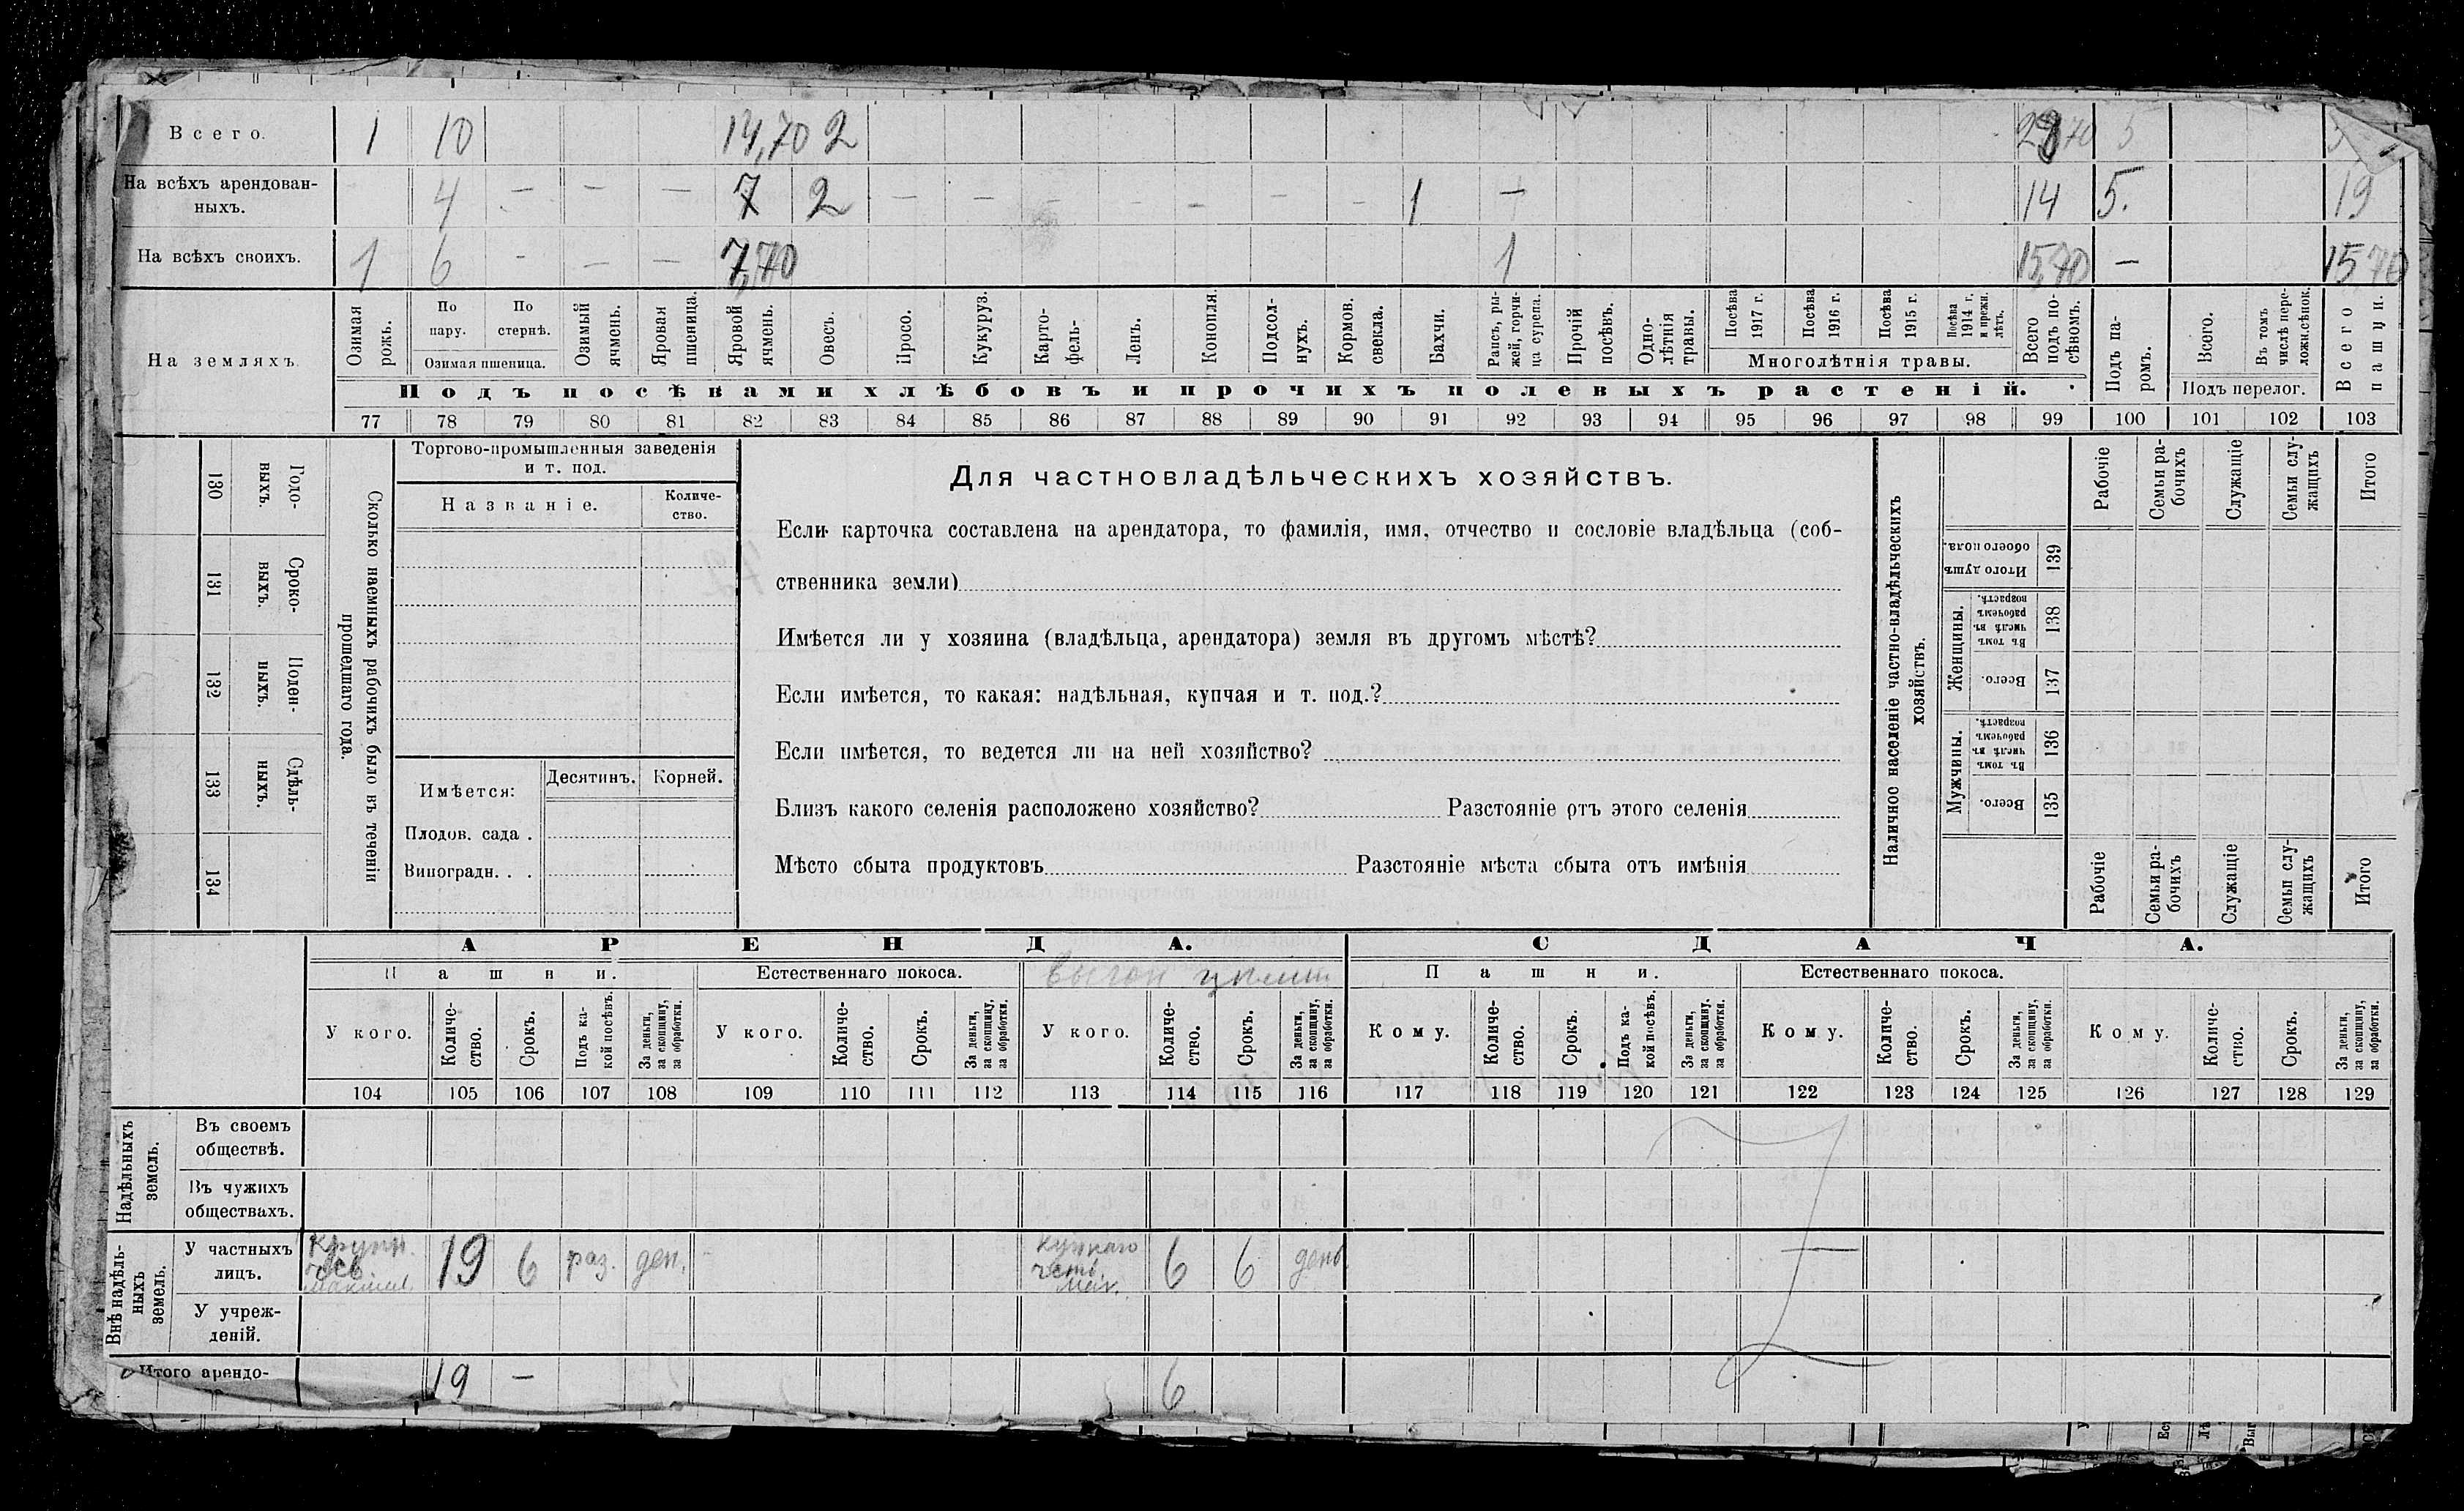 Всего. 1 10 14,70 2 5
На всѣхъ арендован-
ныхъ. 4 — — — 7 2 — — — — — — — 1 — 14 5. 19
На всѣхъ своихъ. 1 6 - — — 7,70 1 15,70 — 15,70
На земляхъ.
Озимая
рожь.
По
пару.
По
стернѣ.
Озимая пшеница.
Озимый
ячмень.
Яровая
пшеница.
Яровой
ячмень.
Овесъ.
Просо.
Кукуруз.
Карто-
фель-
Ленъ.
Конопля.
Подсол-
нухъ.
Кормов.
свекла.
Бахчи.
Рапсъ, ры-
жей, горчи-
ца сурепа.
Прочій
посѣвъ.
Одно-
лѣтнія
травы.
Посѣва
1917 г.
Посѣва
1916 г.
Посѣва
1915 г.
Посѣва
1914 г.
и прежн.
лѣтъ.
Многолѣтнія травы.
Всего
подъ по-
сѣвомъ.
Подъ па-
ромъ.
Всего.
Въ томъ
числѣ пере-
ложн.сѣнок.
Подъ перелог.
Всего
пашни.
Подъ посѣвами хлѣбовъ и прочихъ полевыхъ растеній.
77 78 79 80 81 82 83 84 85 86 87 88 89 90 91 92 93 94 95 96 97 98 99 100 101 102 103
Сколько наемныхъ рабочихъ было въ теченіи
прошедшаго года.
Годо-
выхъ.
130
Сроко-
выхъ.
131
Поден-
ныхъ.
132
Сдѣль-
ныхъ.
133
134
Торгово-промышленныя заведенія
и т. под.
Названіе.
Количе-
ство.
Имѣется:
Десятинъ. Корней.
Плодов. сада .
Виноградн. . .
Для частновладѣльческихъ хозяйствъ.
Если карточка составлена на арендатора, то фамилія, имя, отчество и сословіе владѣльца (соб-
ственника земли)
Имѣется ли у хозяина (владѣльца, арендатора) земля въ другомъ мѣстѣ?
Если имѣется, то какая: надѣльная, купчая и т. под.?
Если имѣется, то ведется ли на ней хозяйство?
Близъ какого селенія расположено хозяйство? Разстояніе отъ этого селенія
Мѣсто сбыта продуктовъ Разстояніе мѣста сбыта отъ имѣнія
Наличное населеніе частно-владѣльческихъ
хозяйствъ.
Рабочіе
Семьи ра-
бочихъ
Служащіе
Семьи слу-
жащихъ
Итого
Итого душъ
обоего пола.
139
Женщины.
Въ томъ
числѣ въ
рабочемъ
возрастѣ.
138
Всего.
137
Мужчины.
Въ томъ
числѣ въ
рабочемъ
возрастѣ.
136
Всего.
135
Рабочіе
Семьи ра-
бочихъ
Служащіе
Семьи слу-
жащихъ
Итого
АРЕНДА. СДАЧА.
Пашни. Естественнаго покоса. выгон Пашни. Естественнаго покоса.
У кого.
Количе-
ство.
Срокъ.
Подъ ка-
кой посѣвъ.
За деньги,
за скопщину,
за обработки.
У кого.
Количе-
ство.
Срокъ.
За деньги,
за скопщину,
за обработки.
У кого.
Количе-
ство.
Срокъ.
За деньги,
за скопщину,
за обработки.
Кому.
Количе-
ство.
Срокъ.
Подъ ка-
кой посѣвъ.
За деньги,
за скопщину,
за обработки.
Кому.
Количе-
ство.
Срокъ.
За деньги,
за скопщину,
за обработки.
Кому.
Количе-
ство.
Срокъ.
За деньги,
за скопщину,
за обработки.
104 105 106 107 108 109 110 111 112 113 114 115 116 117 118 119 120 121 122 123 124 125 126 127 128 129
Надѣльныхъ
земель.
Въ своемъ
обществѣ.
Въ чужихъ
обществахъ.
Внѣ надѣль-
ныхъ
земель.
У частныхъ
лицъ.
19 6 раз. ден. 6 6 ден.
У учреж-
деній.
Итого арендо- 19 — 6